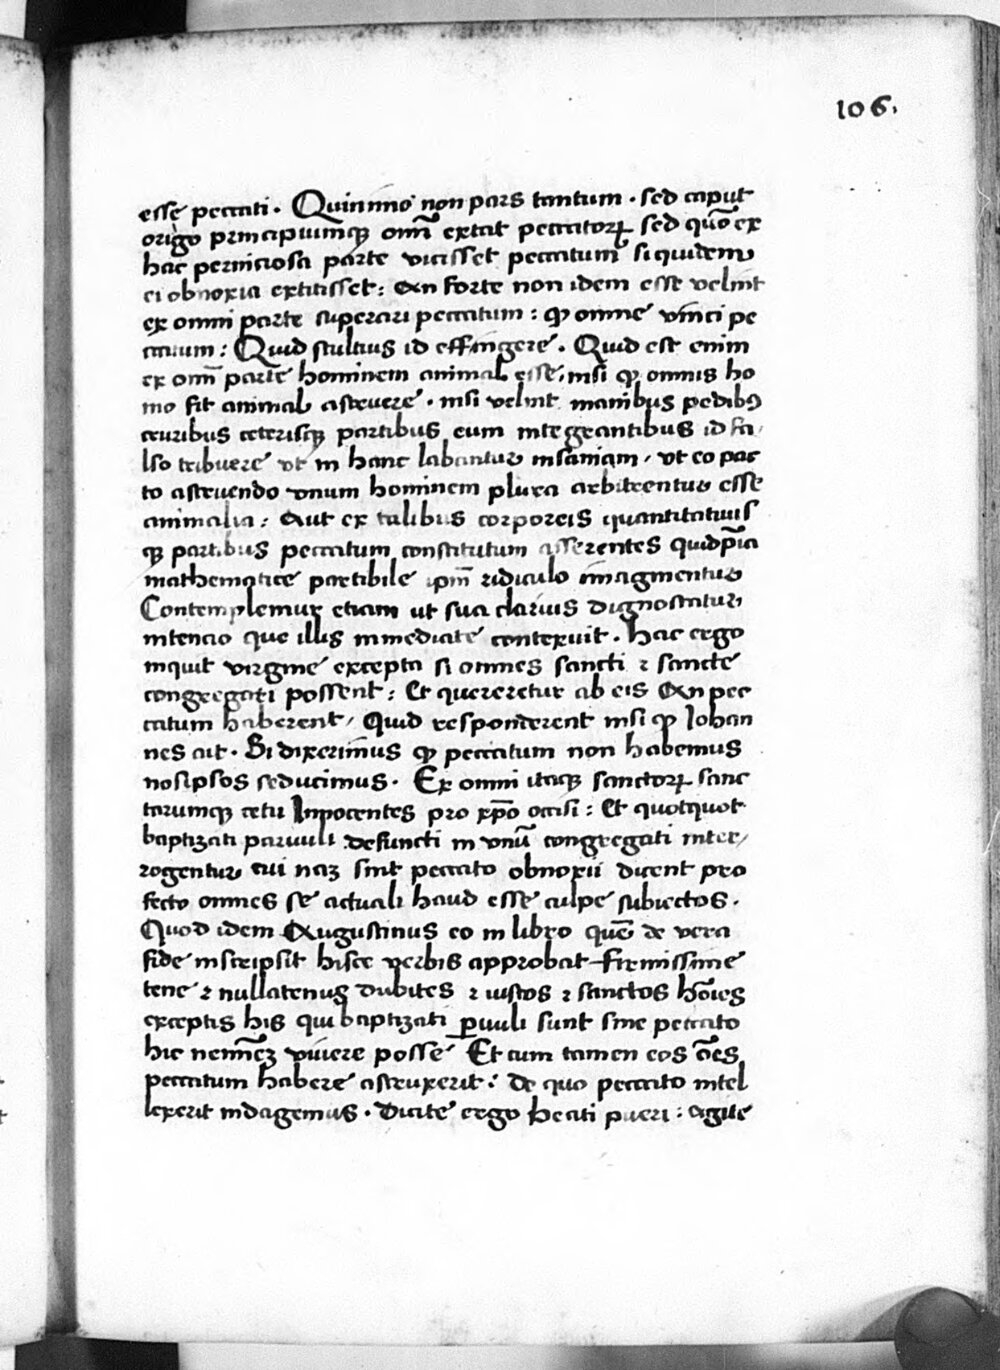 106.
esse peccati. Quinimo non pars tantum. sed caput
origo principiumqꝫ om̅i extat peccatoꝝ sed quo̅ ex
hac perniciosa parte vicisset peccatum si quidem
ei obnoxia extitisset: An forte non idem esse velint
ex omni parte superari peccatum: ꝙ omne vinci pe
ccatum: Quid stultius id effingere. Quid est enim
ex om̅i parte hominem animal esse, nisi ꝙ omnis ho
mo sit animal astruere. nisi velint manibus pedibꝰ
cruribus ceterisqꝫ partibus eum integrantibus id fa,
lso tribuere vt in hanc labantur insaniam, vt eo pac
to astruendo vnum hominem plura arbitrentur esse
animalia: Aut ex talibus corporeis quantitatiuis
qꝫ partibus peccatum constitutum asserentes quidp̅ia
mathematice partibile ip̅m ridiculo imaginentur
Contemplemur etiam ut sua clarius dignoscatur
intencio que illis inmediate contexuit. Hac ergo
inquit virgine excepta si omnes sancti ⁊ sancte
congregati possent: Et quereretur ab eis An pec
catum haberent, Quid responderent nisi ꝙ Johan
nes ait. Si dixerimus ꝙ peccatum non habemus
nosipsos seducimus. Ex omni itaqꝫ sanctoꝝ sanc
tarumqꝫ cetu Innocentes pro xp̅o occisi: Et quotquot
baptizati paruuli defuncti in vnu̅ congregati inter,
rogentur cui naꝫ sint peccato obnoxii dicent pro
fecto omnes se actuali haud esse culpe subiectos.
Quod idem Augustinus eo in libro que̅ de vera
fide inscripsit hisce verbis approbat firmissime
tene ⁊ nullatenus dubites ⁊ iustos ⁊ sanctos ho̅ies
exceptis his qui baptizati ꝑuuli sunt sine peccato
hic nemine̅ꝫ viuere posse Et cum tamen eos o̅es
peccatum habere astruxerit: de quo peccato intel
lexerit indagemus. Dicite ergo beati pueri: agite